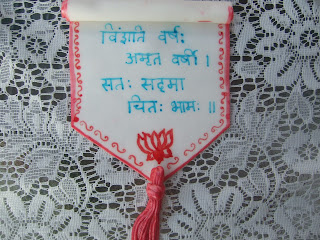 विंशति वर्षः
अमृत वर्षी ।
सतः सद्मा
चितः भामः ॥